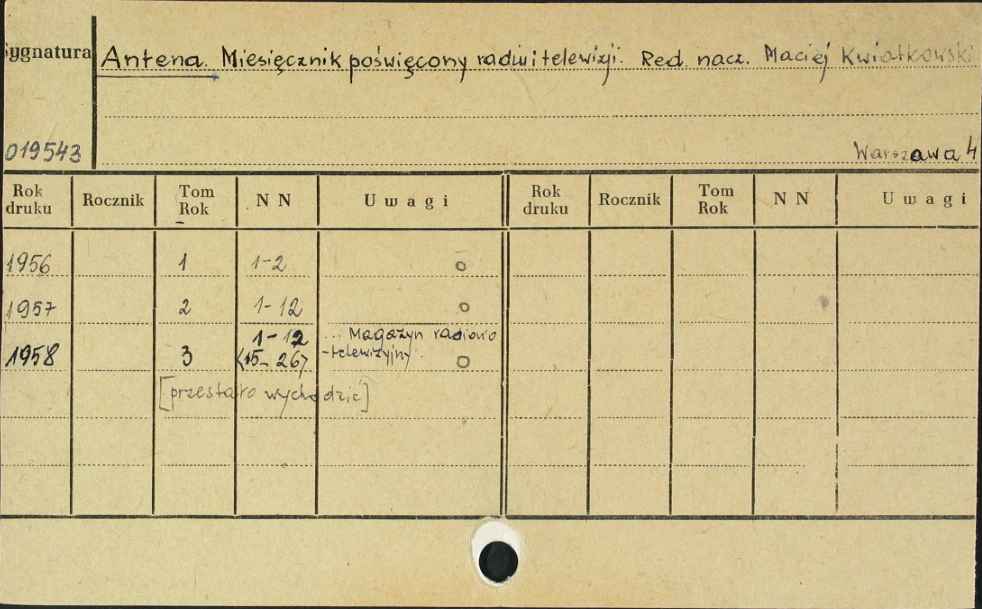 Sygnatura Antena. Miesięcznik poświęcony radiu i telewizji. Red. nacz. Maciej Kwiatkowski
019543 Warszawa 4
Rok druku Rocznik Tom Rok N N Uwagi Rok druku Rocznik Tom Rok N N Uwagi
1956 1 1-2 o
1957 2 1-12 o
1-12 ... Magazyn radiowo
1958 3 (15-26) -telewizyjny. o
[przestało wychodzić]